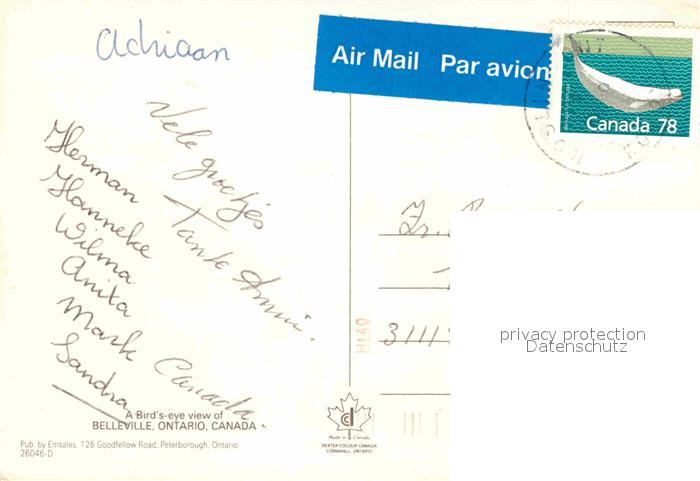 Adriaan
Air Mail Par avion
Canada 78
Vele groetjes
Tante Anni.
Canada.
Herman
Hanneke
Wilma
Anita
Mark
Sandra
Zr.
3111
H140
privacy protection
Datenschutz
A Bird's-eye view of
BELLEVILLE, ONTARIO, CANADA
Pub. by Emsales, 126 Goodfellow Road, Peterborough, Ontario
26046-D
Made in Canada
DEXTER COLOUR CANADA
CORNWALL, ONTARIO